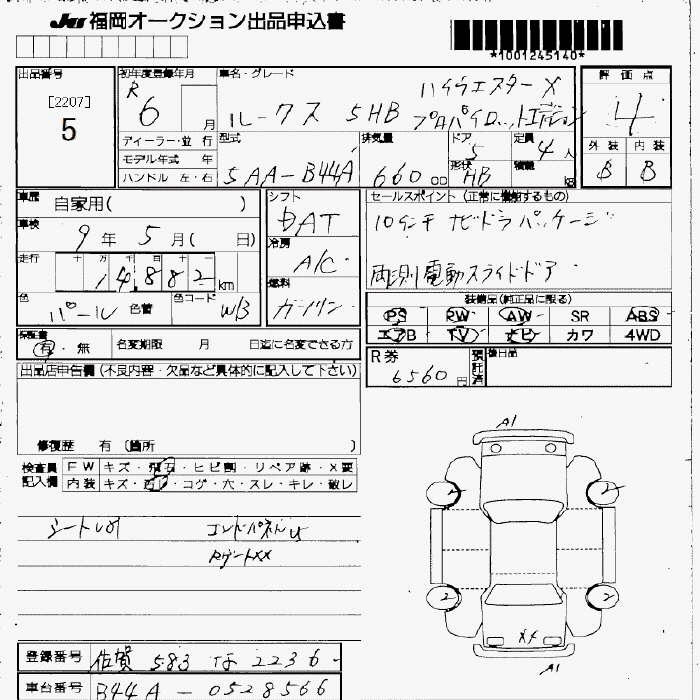 JU 福岡オークション出品申込書
*1001245140*
出品番号 [2207] 5
初年度登録年月 R 6 月
車名・グレード ハイウェスター X
ルークス 5HB プロパイロットエディション
評価点 4
外装 B 内装 B
ディーラー・並行
モデル年式 年
ハンドル 左・右
型式 5AA-B44A
排気量 660 cc
ドア 5
形状 HB
定員 4 人
積載 kg
車歴 自家用( )
車検 9 年 5 月( 日)
走行 十 万 千 百 十 14,882 km
色 パール 色替
色コード W/B
シフト DAT
冷房 A/C
燃料 ガソリン
セールスポイント(正常に機能するもの)
10インチナビドラパッケージ
両側電動スライドドア
装備品(純正品に限る)
PS PW AW SR ABS
エアB TV ナビ カワ 4WD
保証書 有・無
名変期限 月 日迄に名変できる方
R券 6560 円
預託済
後日品
出品店申告欄(不良内容・欠品など具体的に記入して下さい)
修復歴 有(箇所 )
検査員記入欄
FW キズ・飛石・ヒビ割・リペア跡・X要
内装 キズ・汚レ・コゲ・穴・スレ・キレ・破レ
エンドパネル
RゲートXX
A1
2
2
XX
A1
登録番号 佐賀 583 な 2236
車台番号 B44A-0528566